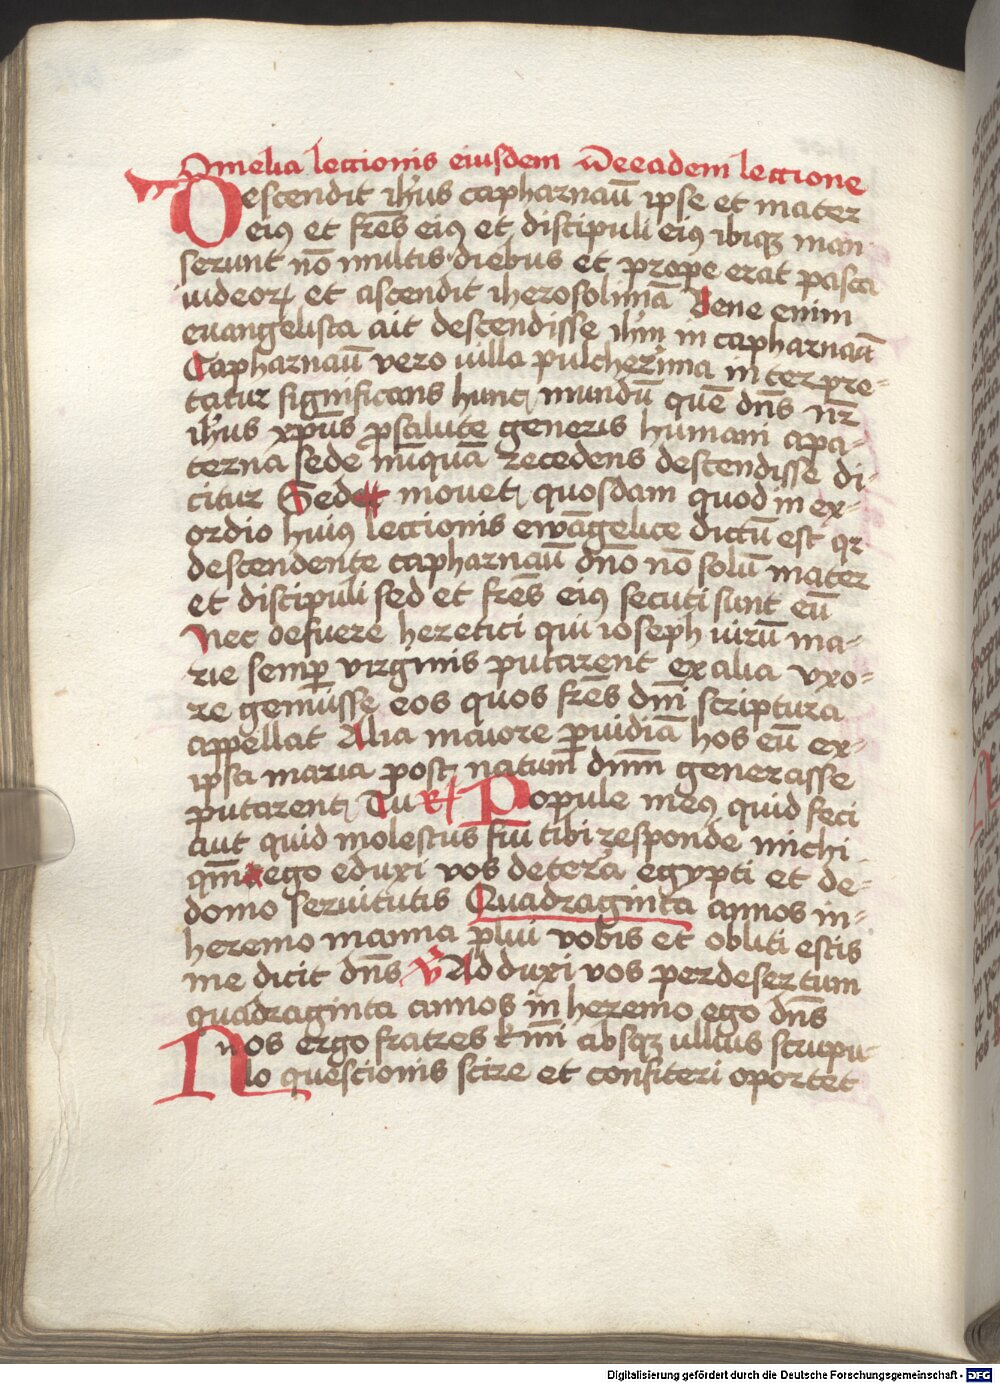 Omelia lectionis eiusdem De eadem lectione
Descendit ih̄us capharnaū ipse et mater
eiꝰ et fr̄es eiꝰ et discipuli eiꝰ ibiqꝫ man
serunt nō multis diebus et prope erat pasca
iudeorꝝ et ascendit iherosolimā Bene enim
euangelista ait descendisse ih̄m in capharnaū
Capharnaū vero uilla pulcherima interpre-
tatur significans hunc mundū quē dn̄s nr̄
ih̄us xp̄us ꝓ salute generis humani apa-
terna sede nūquā recedens descendisse di-
citur Sed et mouet quosdam quod in ex-
ordio huiꝰ lectionis ewāgelice dictū est qr
descendente capharnaū dn̄o nō solū mater
et discipuli sed et fr̄es eiꝰ secuti sunt eū
Nec defuere heretici qui ioseph uirū ma-
rie semꝑ virginis putarent ex alia vxo-
re genuisse eos quos fr̄es dn̄i scriptura
appellat Alia maiore ꝑuidiā hos eū ex-
ipsa maria post natum dn̄m generasse
putarent Tu R Popule meꝰ quid feci
aut quid molestus fui tibi responde michi
qm̄ ego eduxi vos de terra egypti et de-
domo seruitutis Quadraginta annos in-
heremo manna plui vobis et obliti estis
me dicit dn̄s V Adduxi vos per desertum
quadraginta annos in heremo ego dn̄s
Nos ergo fratres k̄mi absqꝫ ullius scrupu-
lo questionis scire et confiteri oportet
Digitalisierung gefördert durch die Deutsche Forschungsgemeinschaft - DFG